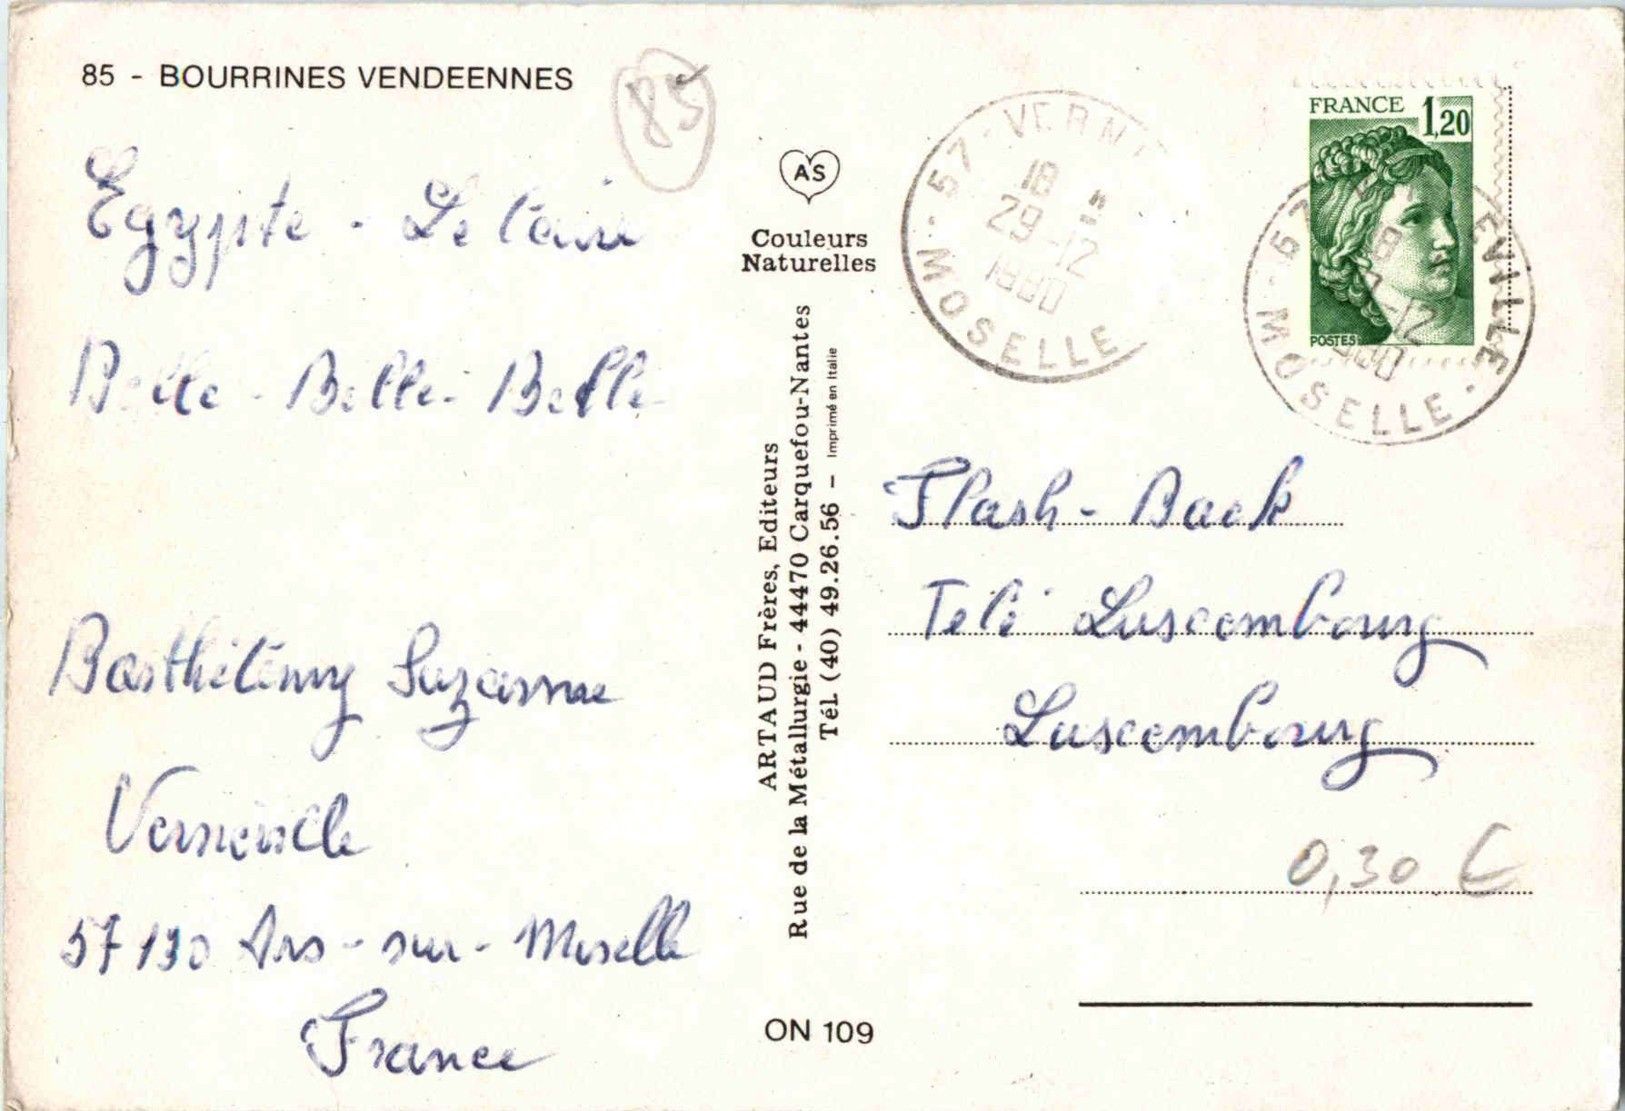 85 - BOURRINES VENDEENNES
85
Egypte - Le Caire
Belle - Belle - Belle
Barthélémy Suzanne
Vernéville
57130 Ars-sur-Moselle
France
AS
Couleurs
Naturelles
ARTAUD Frères, Editeurs
Rue de la Métallurgie - 44470 Carquefou-Nantes
Tél. (40) 49.26.56 - Imprimé en Italie
ON 109
57 - VERN
18 H
29-12
1980
MOSELLE
FRANCE 1,20
POSTES
EVILLE
18
-12
MOSELLE
Flash-Back
Télé Luxcembourg
Luxcembourg
0,30 €